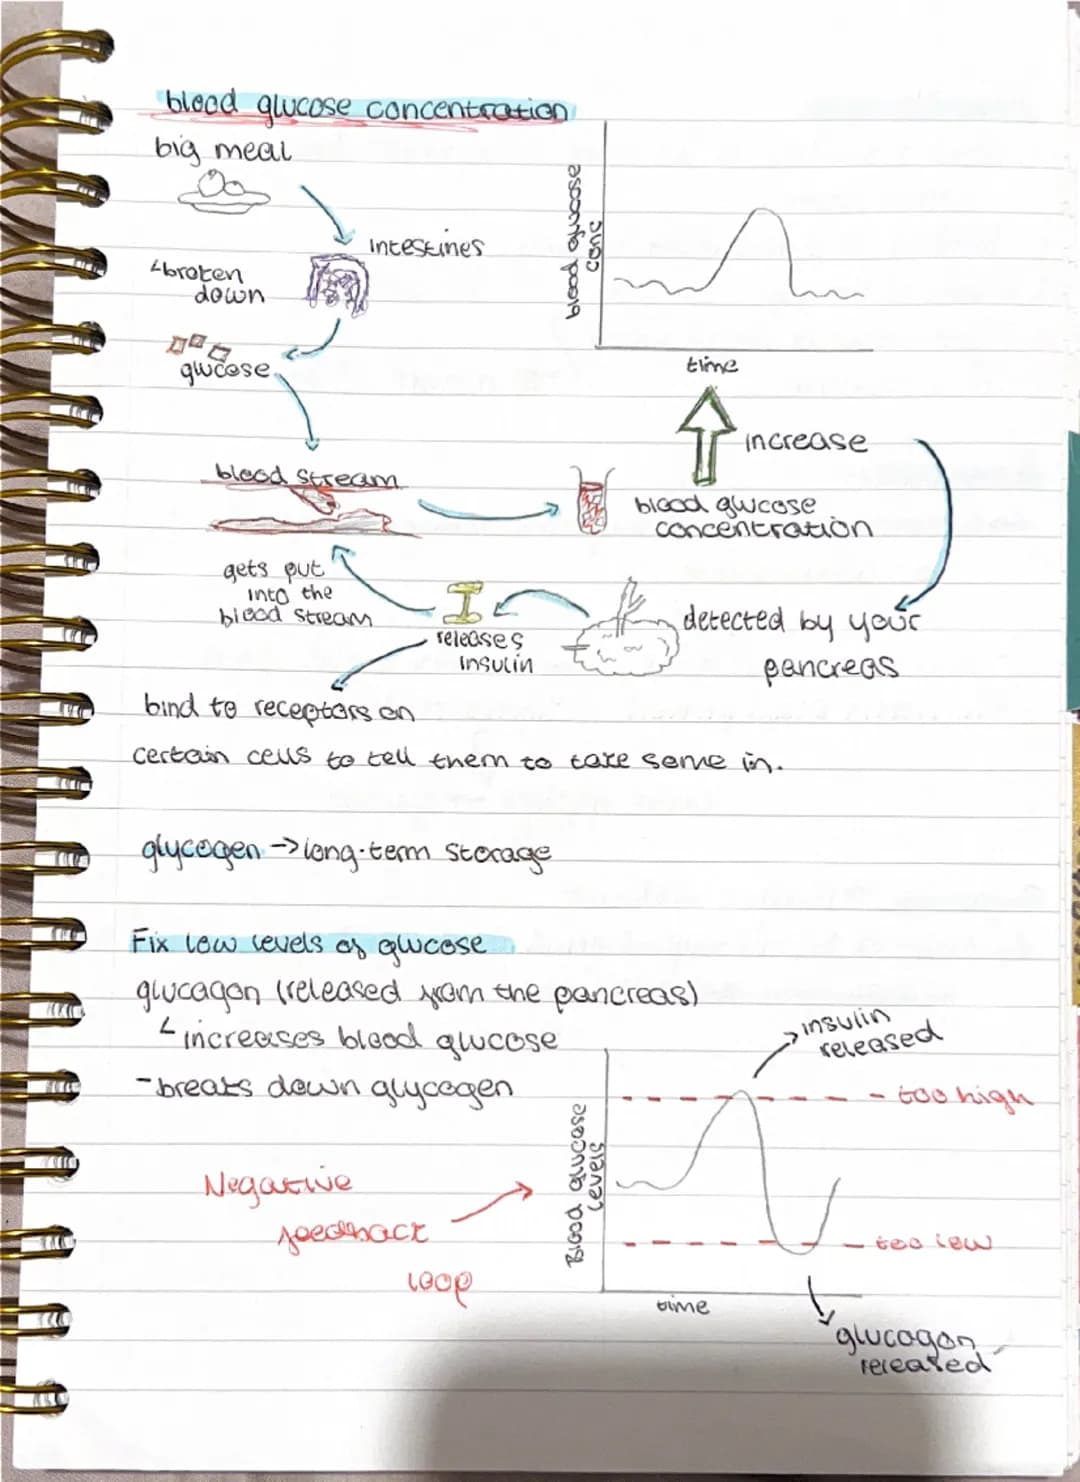 blood glucose concentration
big meal
intestines
↳broken
down
glucose
blood glucose
conc
time
increase
blood stream
blood glucose
concentration
gets put
into the
blood stream
I
releases
insulin
detected by your
pancreas
bind to receptors on
certain cells to tell them to take some in.
glycogen → long-term storage
Fix low levels of glucose
glucagon (released from the pancreas)
↳ increases blood glucose
- breaks down glycogen
Negative
feedback
loop
insulin
released
too high
Blood glucose
levels
too low
time
glucagon
released